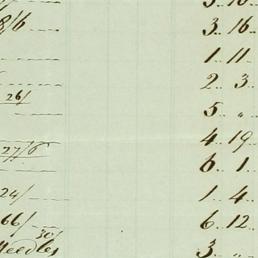 3 10
8/6 3 16
1 11
2 3
26/ 5 "
4 19
27/6 6 1
24/ 1 4
66/ 6 12
30/
Needles 3 "